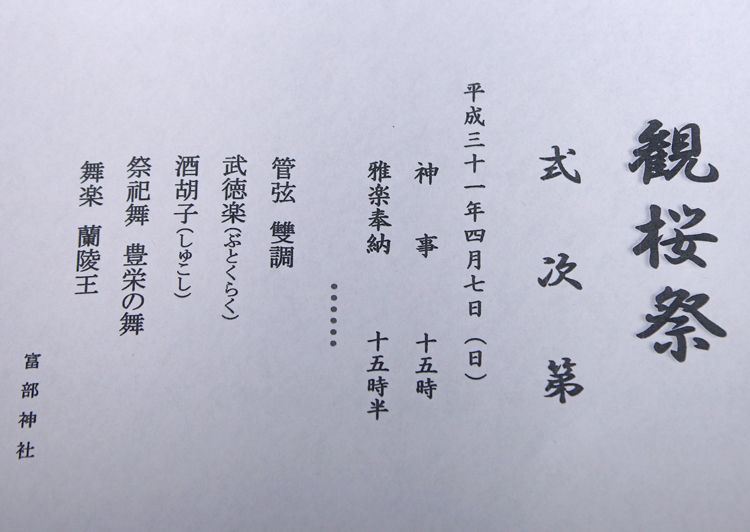 観桜祭
式次第
平成三十一年四月七日（日）
神事　十五時
雅楽奉納　十五時半
●●●●●
管弦　雙調
武徳楽(ぶとくらく)
酒胡子(しゅこし)
祭祀舞　豊栄の舞
舞楽　蘭陵王
富部神社